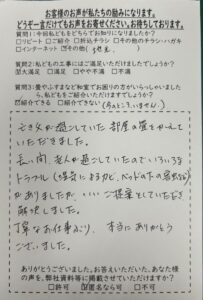 お客様のお声が私たちの励みになります。
どうぞ一言だけでもお声をお寄せください。お待ちしております。
質問1:今回私どもをどちらでお知りになりましたか?
□リピート □ご紹介 □折込チラシ □その他のチラシ・ハガキ
□インターネット ☑その他(
質問2:私どもの工事にはご満足いただけましたでしょうか?
☑大満足 □満足 □やや不満 □不満
質問3:畳やふすまなど和室でお困りの方がいらっしゃいましたら
私どもをご紹介いただけますでしょうか?
☑紹介できる □紹介できない(今のところいません。)
亡き父が過ごしていた部屋の畳をかえて
いただきました。
長い間、老人が過ごしていたのでいろいろな
トラブル(
がありましたが、いいご提案をしていただき
解決しました。
丁寧なお仕事ぶり、本当にありがとう
ございました。
ありがとうございました。お答えいただいた、あなた様
の声を、弊社資料等に掲載させていただけますか?
□許可 ☑匿名なら可 □不可